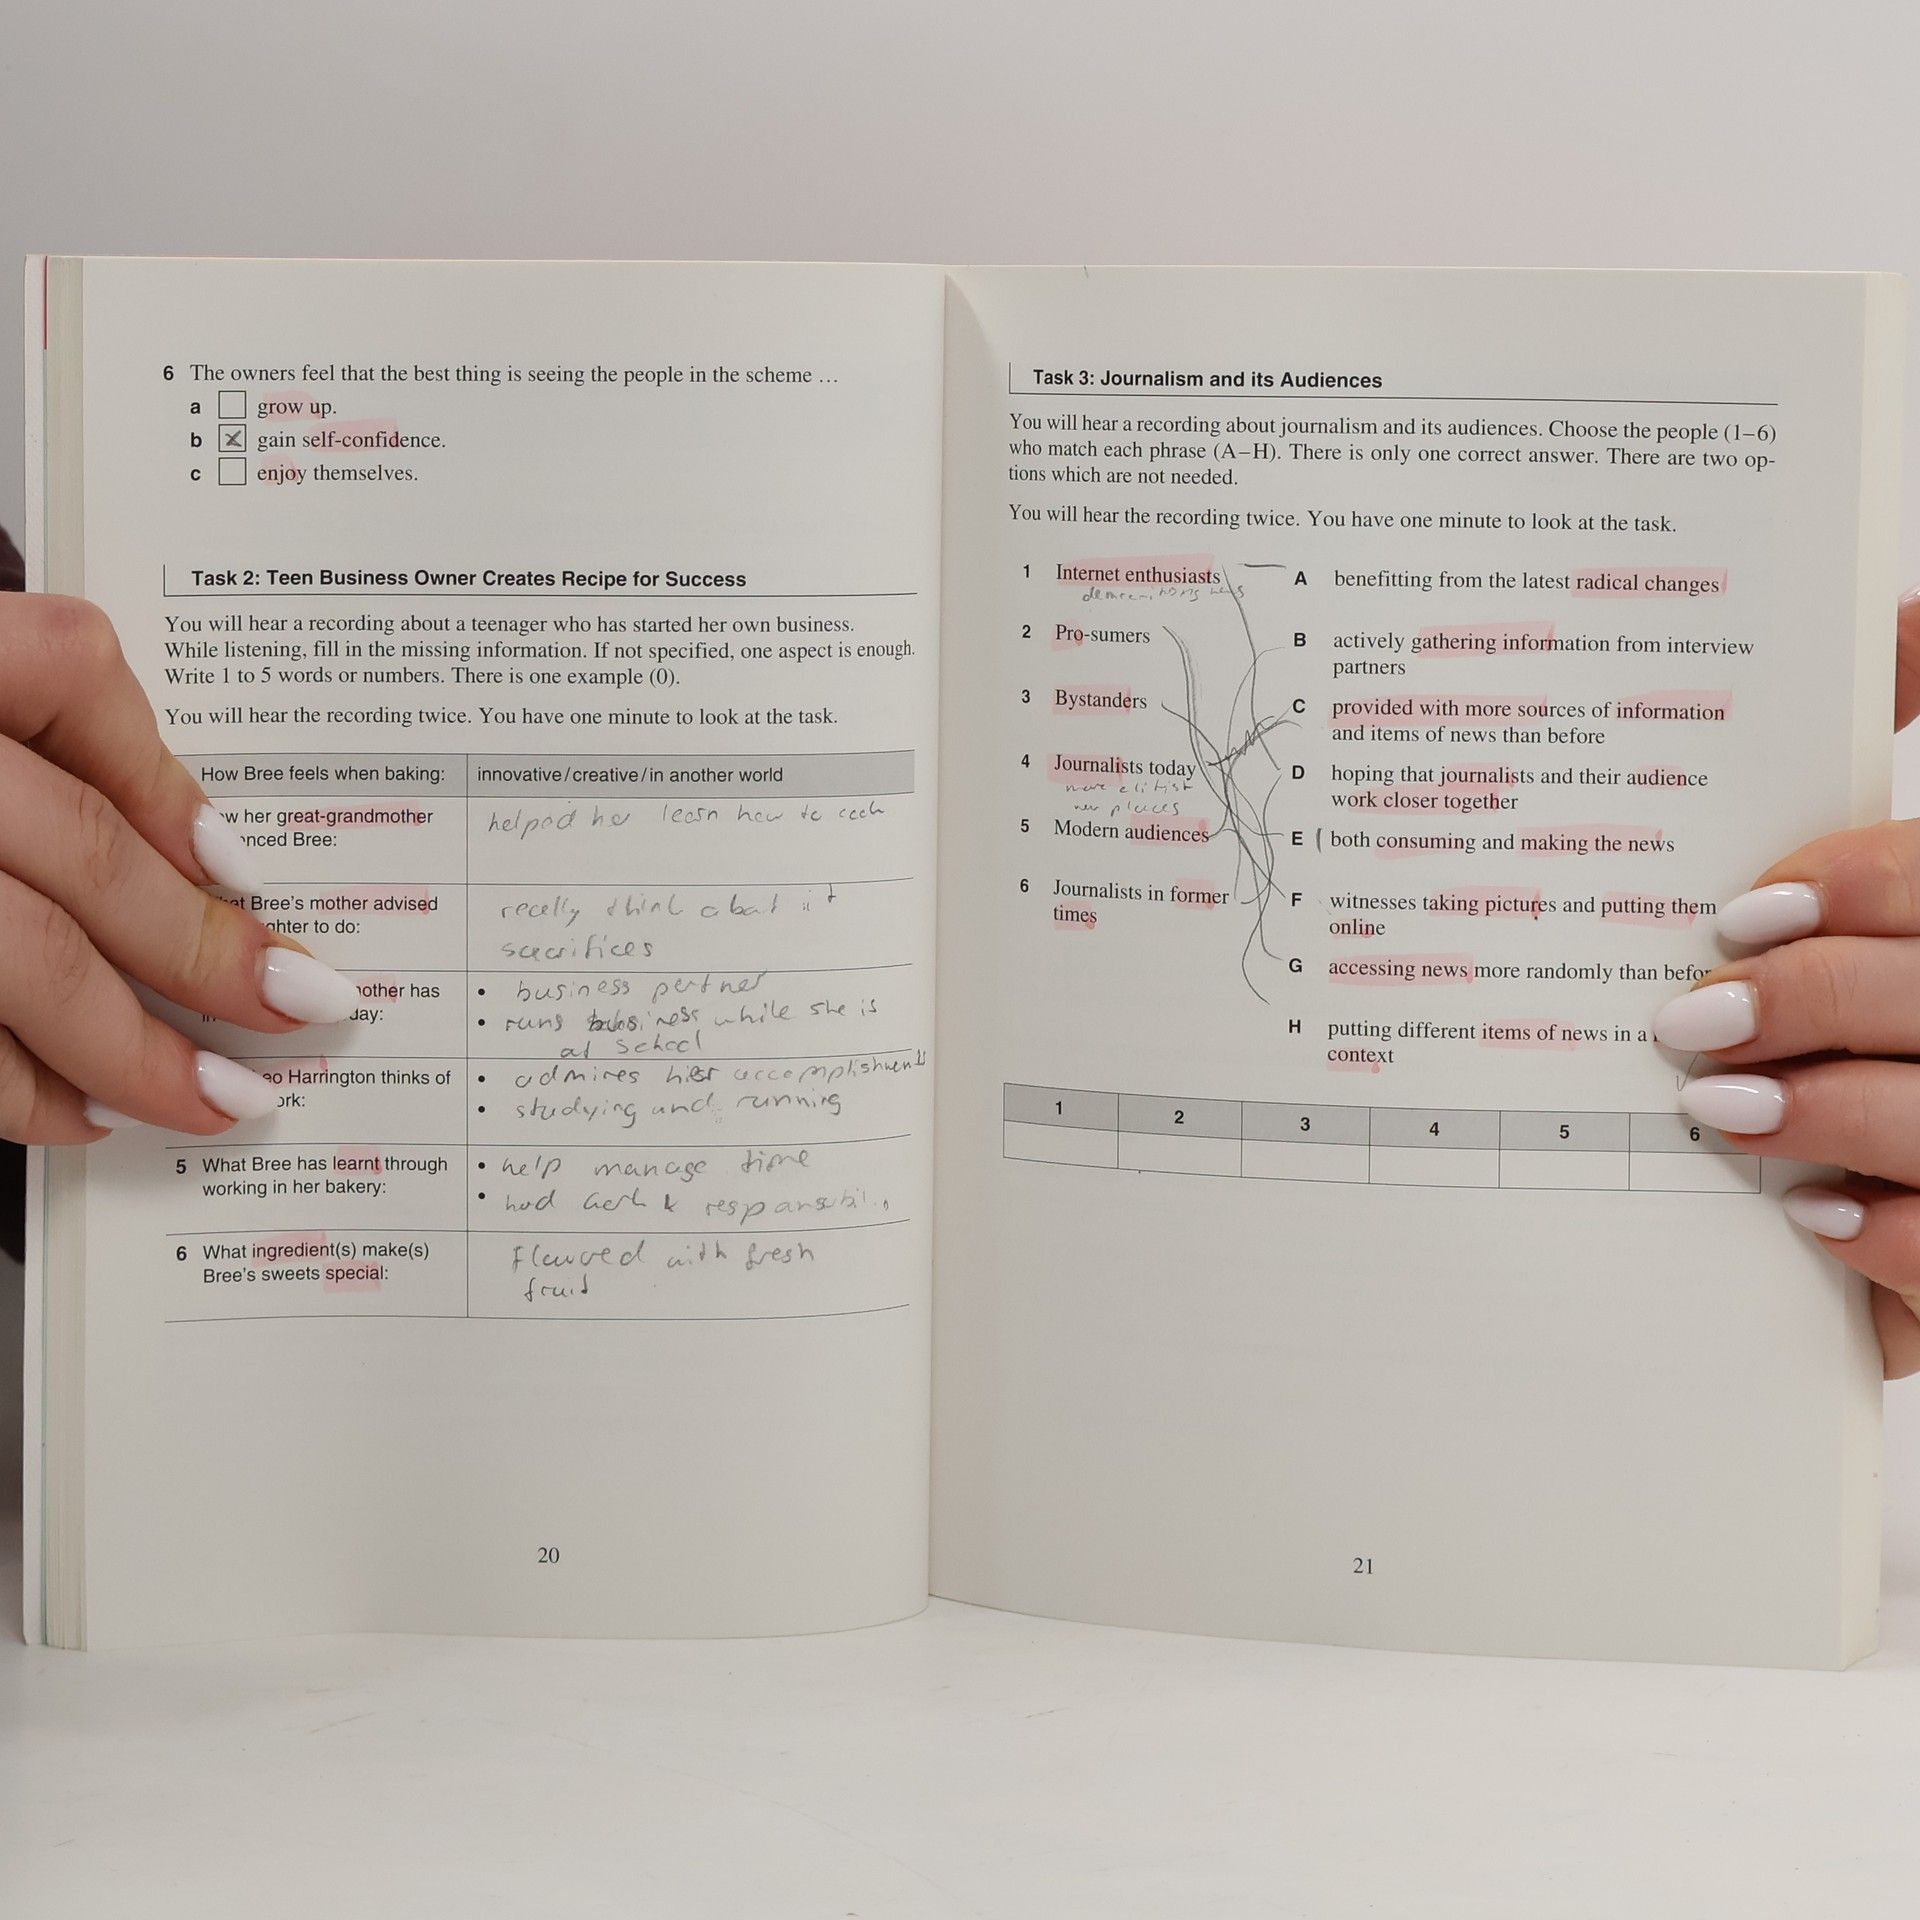 6 The owners feel that the best thing is seeing the people in the scheme …
a grow up.
b x gain self-confidence.
c enjoy themselves.
Task 2: Teen Business Owner Creates Recipe for Success
You will hear a recording about a teenager who has started her own business.
While listening, fill in the missing information. If not specified, one aspect is enough.
Write 1 to 5 words or numbers. There is one example (0).
You will hear the recording twice. You have one minute to look at the task.
How Bree feels when baking: innovative/creative/in another world
her great-grandmother
Bree:
helped her learn how to
Bree's mother advised
to do:
really think about it
sacrifices
has
• business partner
• runs business while she is
at school
Harrington thinks of
• admires her accomplishments
• studying and running
5 What Bree has learnt through
working in her bakery:
• help manage time
• &
6 What ingredient(s) make(s)
Bree's sweets special:
with fresh
fruit
20
Task 3: Journalism and its Audiences
You will hear a recording about journalism and its audiences. Choose the people (1–6)
who match each phrase (A–H). There is only one correct answer. There are two op-
tions which are not needed.
You will hear the recording twice. You have one minute to look at the task.
1 Internet enthusiasts
2 Pro-sumers
3 Bystanders
4 Journalists today
more elitist
5 Modern audiences
6 Journalists in former
times
A benefitting from the latest radical changes
B actively gathering information from interview
partners
C provided with more sources of information
and items of news than before
D hoping that journalists and their audience
work closer together
E both consuming and making the news
F witnesses taking pictures and putting them
online
G accessing news more randomly than
H putting different items of news in a
context
1 2 3 4 5 6
21